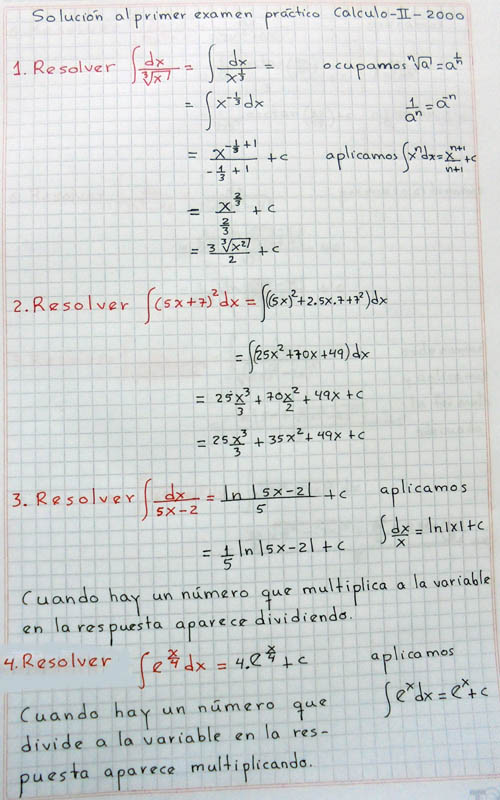 Solución al primer examen práctico Calculo-II-2000
1. Resolver ∫dx/∛x = ∫dx/x^(1/3) = ocupamos ⁿ√a = a^(1/n)
= ∫x^(-1/3) dx 1/aⁿ = a^(-n)
= x^(-1/3+1)/(-1/3+1) + c aplicamos ∫xⁿdx = x^(n+1)/(n+1) + c
= x^(2/3)/(2/3) + c
= 3∛x²/2 + c
2. Resolver ∫(5x+7)² dx = ∫((5x)²+2.5x.7+7²)dx
= ∫(25x²+70x+49)dx
= 25x³/3 + 70x²/2 + 49x + c
= 25x³/3 + 35x² + 49x + c
3. Resolver ∫dx/(5x-2) = ln|5x-2|/5 + c aplicamos
∫dx/x = ln|x| + c
= 1/5 ln|5x-2| + c
Cuando hay un número que multiplica a la variable
en la respuesta aparece dividiendo.
4. Resolver ∫e^(x/4) dx = 4.e^(x/4) + c aplicamos
∫e^x dx = e^x + c
Cuando hay un número que
divide a la variable en la res-
puesta aparece multiplicando.